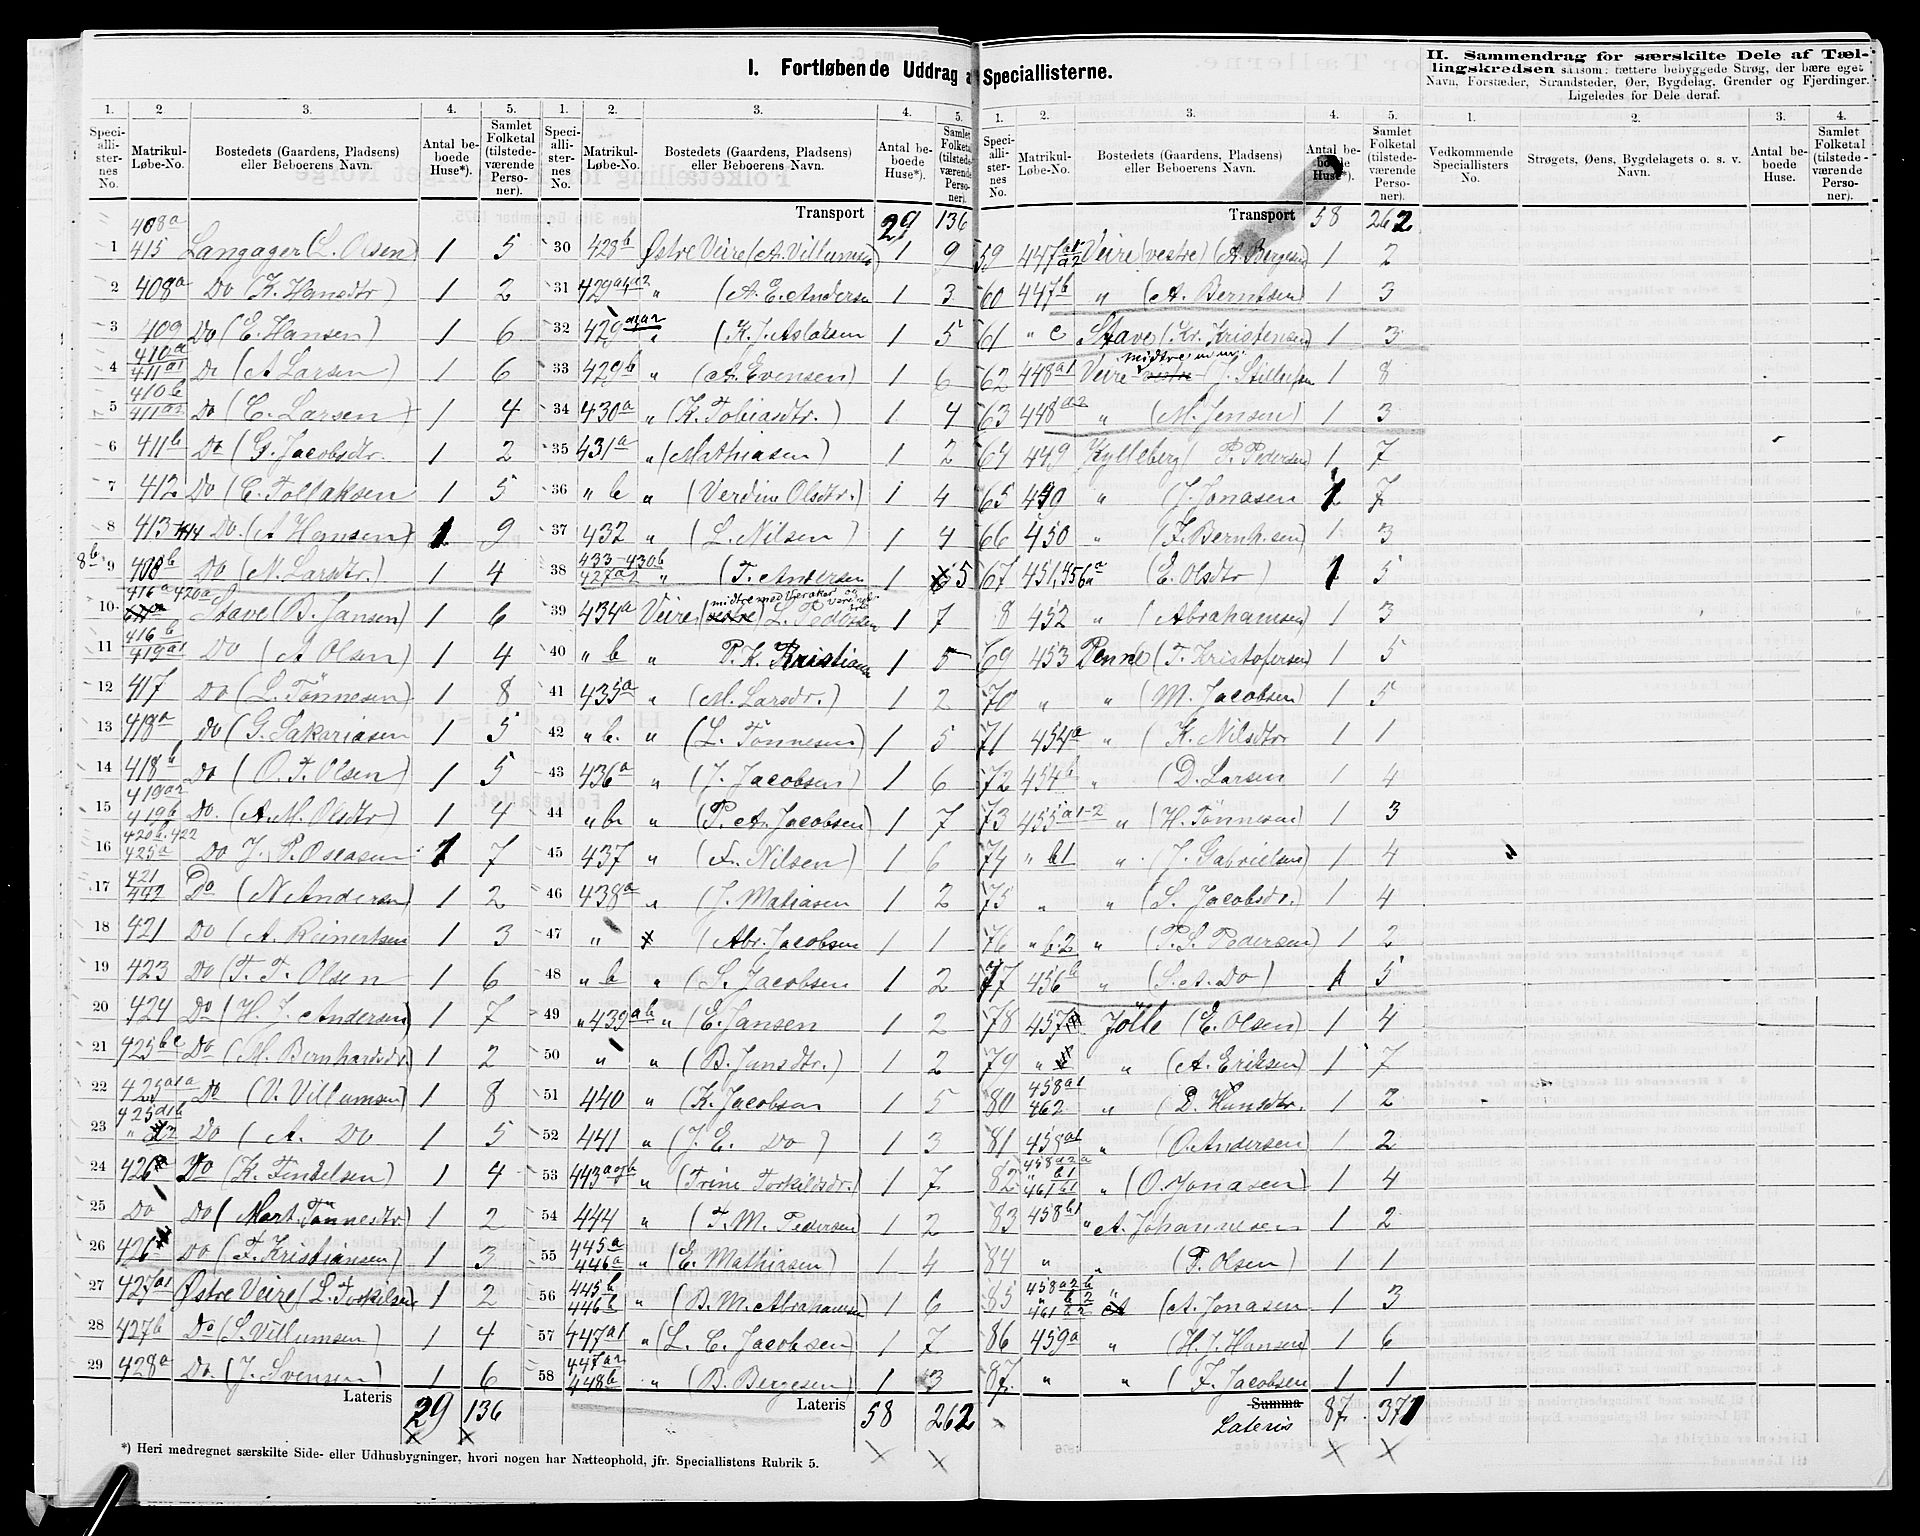 I. Fortløbende Uddrag a Speciallisterne.
II. Sammendrag for særskilte Dele af Tællingskredsen saasom: tættere bebyggede Strøg, der bære eget Navn, Forstæder, Strandsteder, Øer, Bygdelag, Grender og Fjerdinger. Ligeledes for Dele deraf.
1. 2 3. 4. 5.
Speciallisternes No. Matrikul-Løbe-No. Bostedets (Gaardens, Pladsens) eller Beboerens Navn. Antal beboede Huse*). Samlet Folketal (tilstedeværende Personer).
408a
1 415 Langager (L. Olsen) 1 5
2 408a Do (K. Hansdtr) 1 2
3 409 Do (E. Hansen) 1 6
4 410a 411a1 Do (A Larsen) 1 6
5 410b 411a2 Do (C. Larsen) 1 4
6 411b Do (G. Jacobsdtr. 1 2
7 412 Do (E. Tollaksen 1 5
8 413 414 Do. (A Hansen) 1 9
8b 9 408b Do (N. Larsdtr.) 1 4
10 416a 420a Stave (B. Jansen) 1 6
11 416b 419a1 Do (A Olsen) 1 4
12 417 Do (L. Tönnesen) 1 8
13 418a Do (G. Sakariasen 1 5
14 418b Do (O. T. Olsen) 1 5
15 419a2 419b Do. (A. M. Olsdtr) 1 4
16 420b. 422 425a Do J. P. Oseasen 1 7
17 421 442 Do (N. Andersen) 1 2
18 421 Do (A. Reinertsen 1 3
19 423 Do (T. T. Olsen 1 6
20 424 Do (H. J. Andersen) 1 7
21 425bc Do (M. Bernhardsdr. 1 2
22 425a1a Do (V. Villumsen) 1 8
23 425d1b Do (A. Do 1 5
24 426a Do (K. Tindelsen) 1 4
25 Do Do (Mart. Tönnesdtr) 1 2
26 426 Do (F. Kristiansen) 1 3
27 427a1 Østre Veire (L. Torkilsen 1 2
28 427b Do (S. Villumsen) 1 4
29 428a Do. (J. Svensen) 1 6
Lateris 29 136
1. 2. 3. 4. 5.
Speciallisternes No. Matrikul-Løbe-No. Bostedets (Gaardens, Pladsens) eller Beboerens Navn. Antal beboede Huse*). Samlet Folketal (tilstedeværende Personer).
Transport 29 136
30 428b Østre Veire (A. Villumsen 1 9
31 429a1a2 " (A. E. Andersen 1 3
32 429a1a2 " (K. J. Aslaksen 1 5
33 429b " (A. Evensen) 1 6
34 430a " (K. Tobiasdtr.) 1 4
35 431a " (Mathiasen) 1 2
36 " b " (Verdine Olsdtr.) 1 4
37 432 " (L. Nilsen) 1 4
38 433-430b 427a2 " (T. Andersen 1 5
39 434a Veire (vestre) L. Pedersen 1 7
40 " b " P. K. Kristian 1 5
41 435a " (M. Larsdr.) 1 2
42 " b. " (L. Tönnesen) 1 5
43 436a " (J. Jacobsen) 1 6
44 " b " (P. A. Jacobsen) 1 7
45 437 " (A. Nilsen) 1 6
46 438a " (J. Matiasen 1 2
47 " (Abr. Jacobsen 1 1
48 " b " (S. Jacobsen 1 2
49 " 439ab " (E. Jansen 1 2
50 " " (B. Jansdtr.) 1 2
51 440 " (K. Jacobsen 1 5
52 441 " (J. E. Do) 1 3
53 443 " (Trine Torkildsdr.) 1 7
54 444 " (T. M. Pedersen) 1 2
55 445a 446a " (E. Mathiasen) 1 4
56 445b 446b " (B. M. Abrahamsen) 1 6
57 447a1 " (L. C. Jacobsen) 1 7
58 447a2 448b " (B. Bergesen) 1 3
Lateris 58 262
*) Heri medregnet særskilte Side- eller Udhusbygninger, hvori nogen har Natteophold, jfr. Speciallistens Rubrik 5.
1. 2. 3. 4. 5.
Speciallisternes No. Matrikul-Løbe-No. Bostedets (Gaardens, Pladsens) eller Beboerens Navn. Antal beboede Huse*). Samlet Folketal (tilstedeværende Personer).
Transport 58 262
59 447a1 a2 Veire (vestre) (A Bergesen 1 2
60 447b " (A. Berntsen) 1 3
61 " c Stave (Kr. Kristensen) 1 3
62 448a1 Veire midtre vestre (J. 1 8
63 448a2 " (M. Jensen) 1 3
64 449 Kylleberg P. Pedersen) 1 7
65 450 " (J. Jonasen 1 7
66 450 " (F. Bernh.sen) 1 3
67 451, 456a " (E. Olsdtr) 1 5
8 452 " (Abrahamsen) 1 3
69 453 Penne (T. Kristofersen) 1 5
70 " " (M. Jacobsen) 1 5
71 454a " (K. Nilsdtr 1 1
72 454b " (D. Larsen 1 4
73 455a1-2 " (H. Tönnesen) 1 3
74 " b1 " (J. Gabrielsen) 1 4
75 " " (S. Jacobsdr.) 1 4
76 " b.2 " (P. S. Pedersen) 1 2
77 456b " (S. A. Do) 1 5
78 457 Jölle (E. Olsen) 1 4
79 " " (A. Eriksen) 1 7
80 458a1 462 " (D. Hansdtr. 1 2
81 458a1 " (O. Andersen 1 2
82 458a2a " b1 461b1 " (O. Jonasen) 1 4
83 458b1 " A. Johannesen 1 2
84 " " (P. Olsen) 1 1
85 458a2b " b 2 461 a2 " (A. Jonasen 1 3
86 459a " (H. J. Hansen) 1 6
87. " " (F. Jacobsen 1 1
Summa
Lateris 87 371
1. 2. 3. 4.
Vedkommende Speciallisters No. Strøgets, Øens, Bygdelagets o. s. v. Navn. Antal beboede Huse. Samlet Folketal (tilstedeværende Personer).